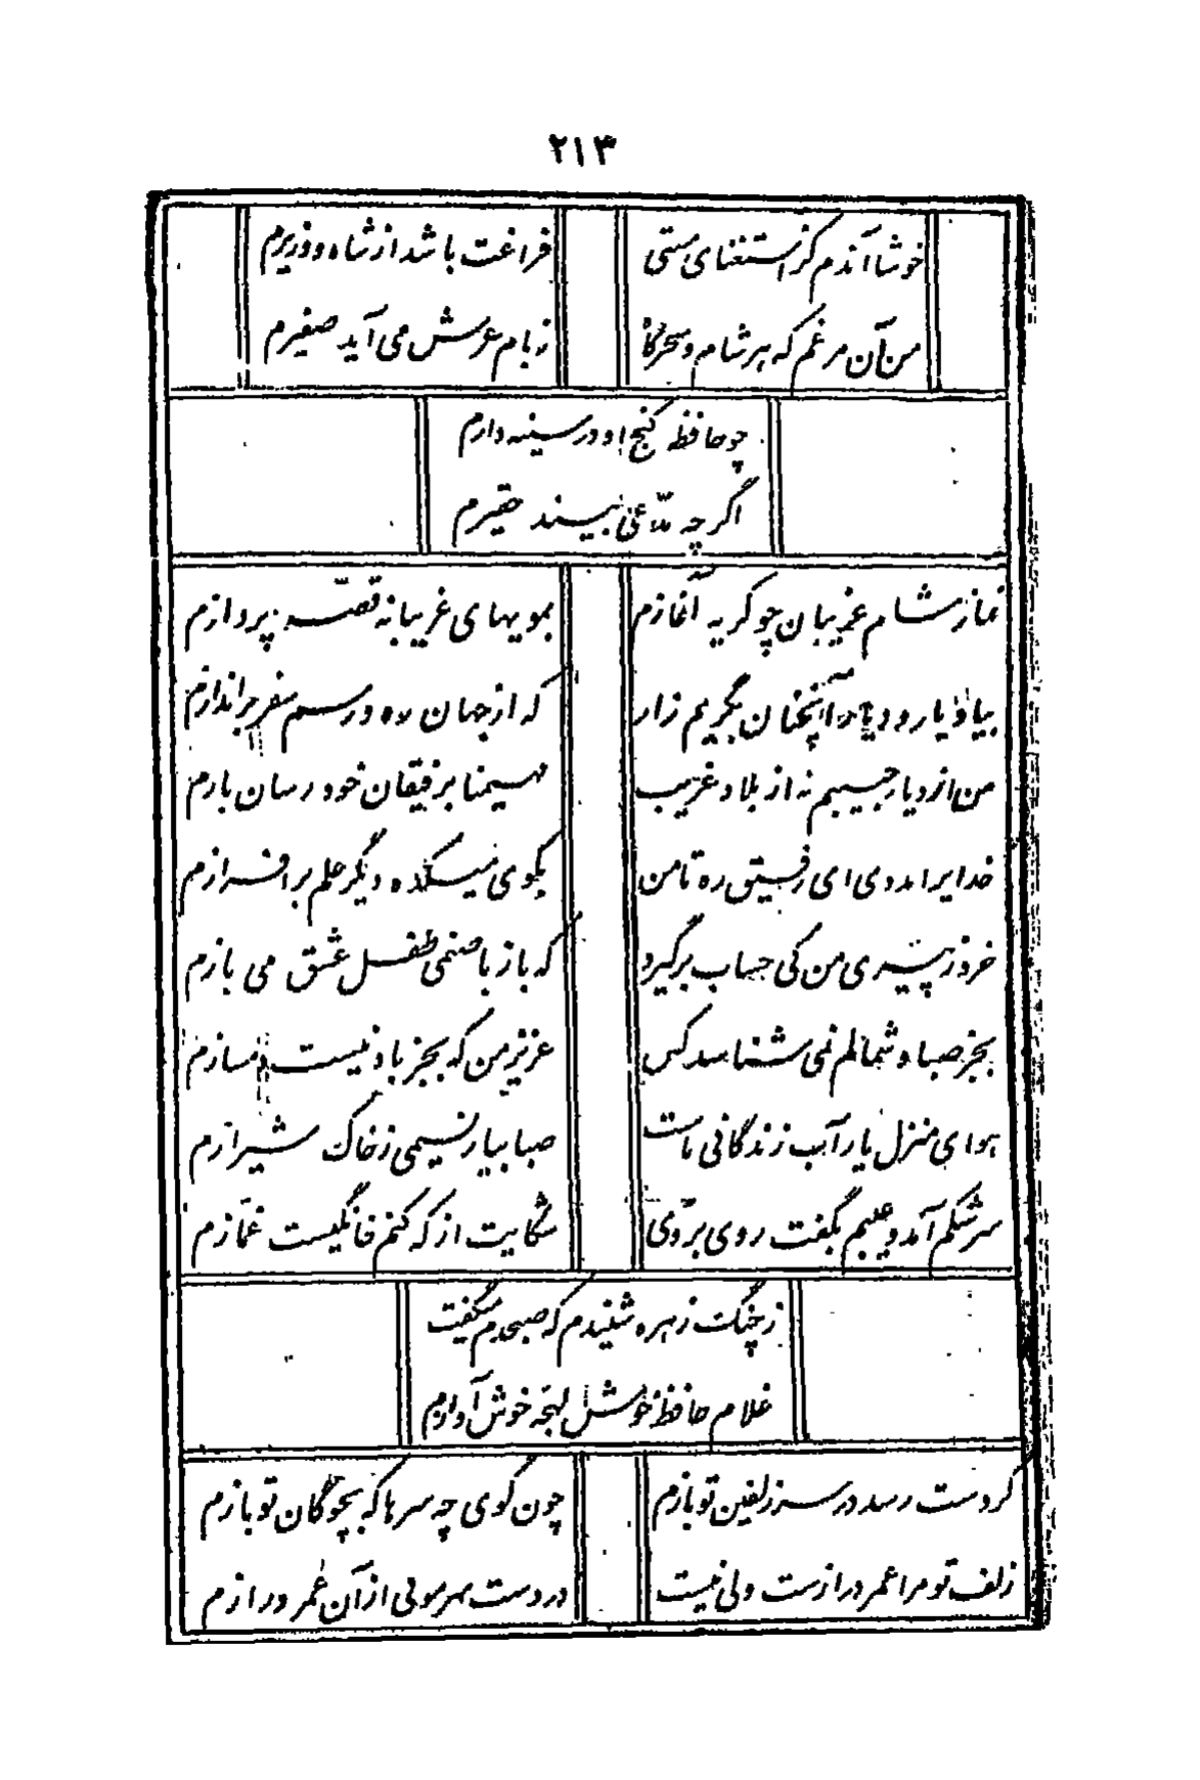 ۲۱۳
خوشا آندم کز استغنای مستی
فراغت باشد از شاه و وزیرم
من آن مرغم که هر شام و سحرگاه
ز بام عرش می آید صفیرم
چو حافظ گنج او در سینه دارم
اگر چه مدّعی بیند حقیرم
نماز شام غریبان چو گریه آغازم
بمویهای غریبانه قصّه پردازم
بیاد یار و دیار آنچنان بگریم زار
که از جهان ره و رسم سفر براندازم
من از دیار حبیبم نه از بلاد غریب
مهیمنا برفیقان خود رسان بازم
خدایرا مددی ای رفیق ره تا من
بکوی میکده دیگر علم برافرازم
خرد ز پیری من کی حساب برگیرد
که باز با صنمی طفل عشق می بازم
بجز صبا و شمالم نمی شناسد کس
عزیز من که بجز باد نیست دمسازم
هوای منزل یار آب زندگانی ماست
صبا بیار نسیمی ز خاک شیرازم
سرشکم آمد و عیبم بگفت روی بروی
شکایت از که کنم خانگیست غمّازم
ز چنگ زهره شنیدم که صبحدم میگفت
غلام حافظ خوش لهجه خوش آوازم
گر دست رسد در سر زلفین تو بازم
چون گوی چه سرها که بچوگان تو بازم
زلف تو مرا عمر درازست ولی نیست
در دست سر موئی از آن عمر درازم